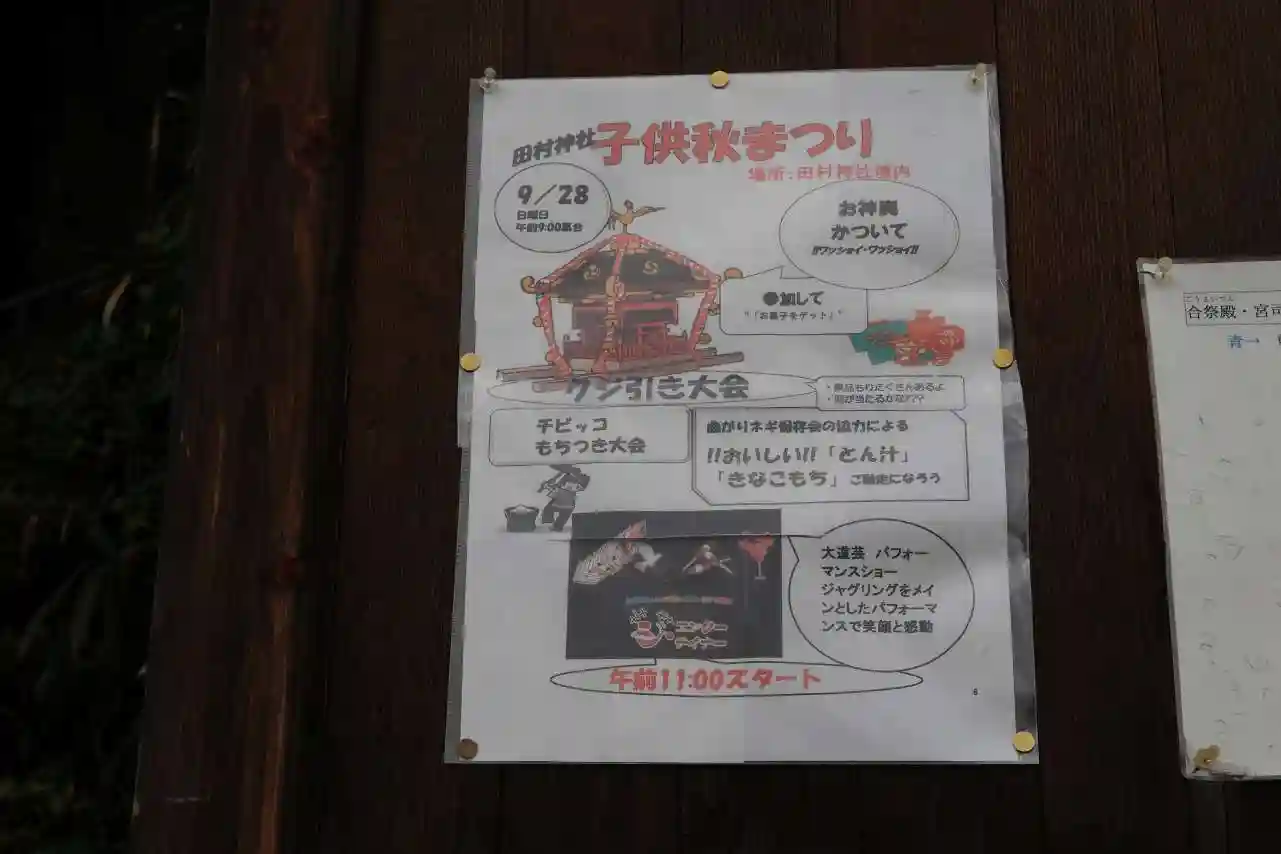 田村神社子供秋まつり
場所:田村神社境内
9/28
日曜日
午前9:00集合
お神輿
かついで
!!ワッショイ・ワッショイ!!
参加して
"「お菓子をゲット」"
クジ引き大会
・景品もりだくさんあるよ
・何が当たるかな???
チビッコ
もちつき大会
曲がりネギ保存会の協力による
!!おいしい!!「とん汁」
「きなこもち」ご馳走になろう
大道芸 パフォー
マンスショー
ジャグリングをメイ
ンとしたパフォーマ
ンスで笑顔と感動
エンター
テイナー
午前11:00スタート
6
ごうさいでん
合祭殿・宮司
青→